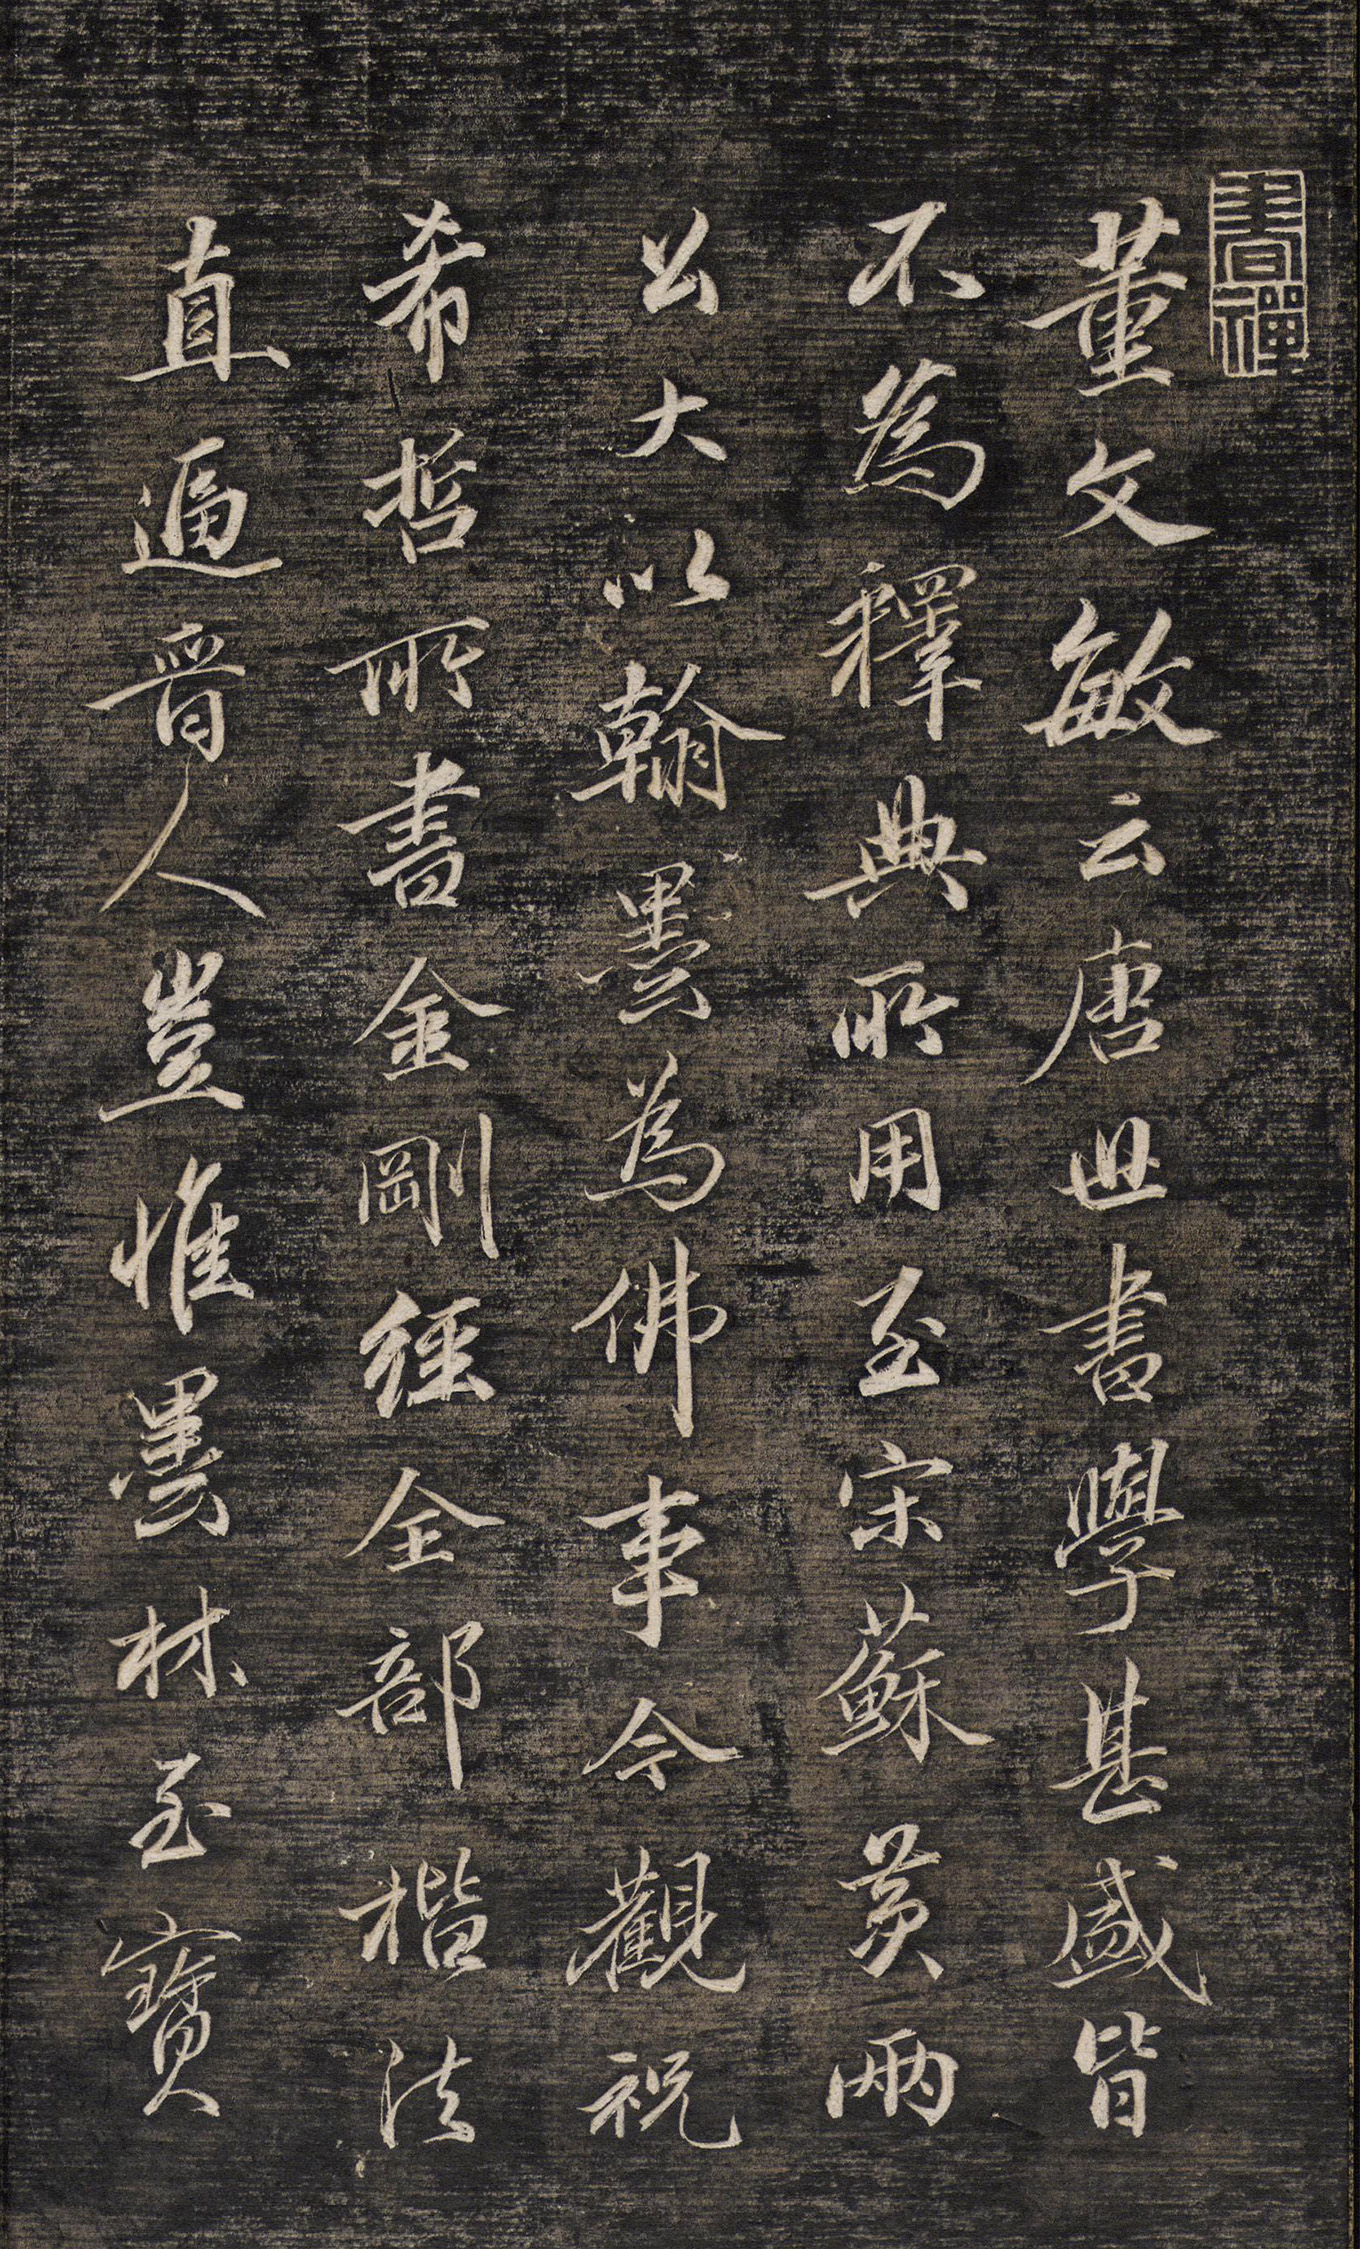 書禪
董文敏云唐世書學甚盛皆
不為釋典所用至宋蘇黃兩
公大以翰墨為佛事今觀祝
希哲所書金剛經全部楷法
直逼晉人豈惟墨林至寶